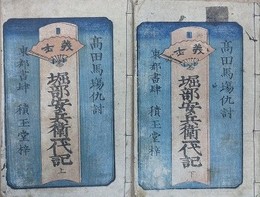 高田馬場仇討
義士
堀部安兵衛代記 上
東都書肆 積玉堂梓
高田馬場仇討
義士
堀部安兵衛代記 下
東都書肆 積玉堂梓